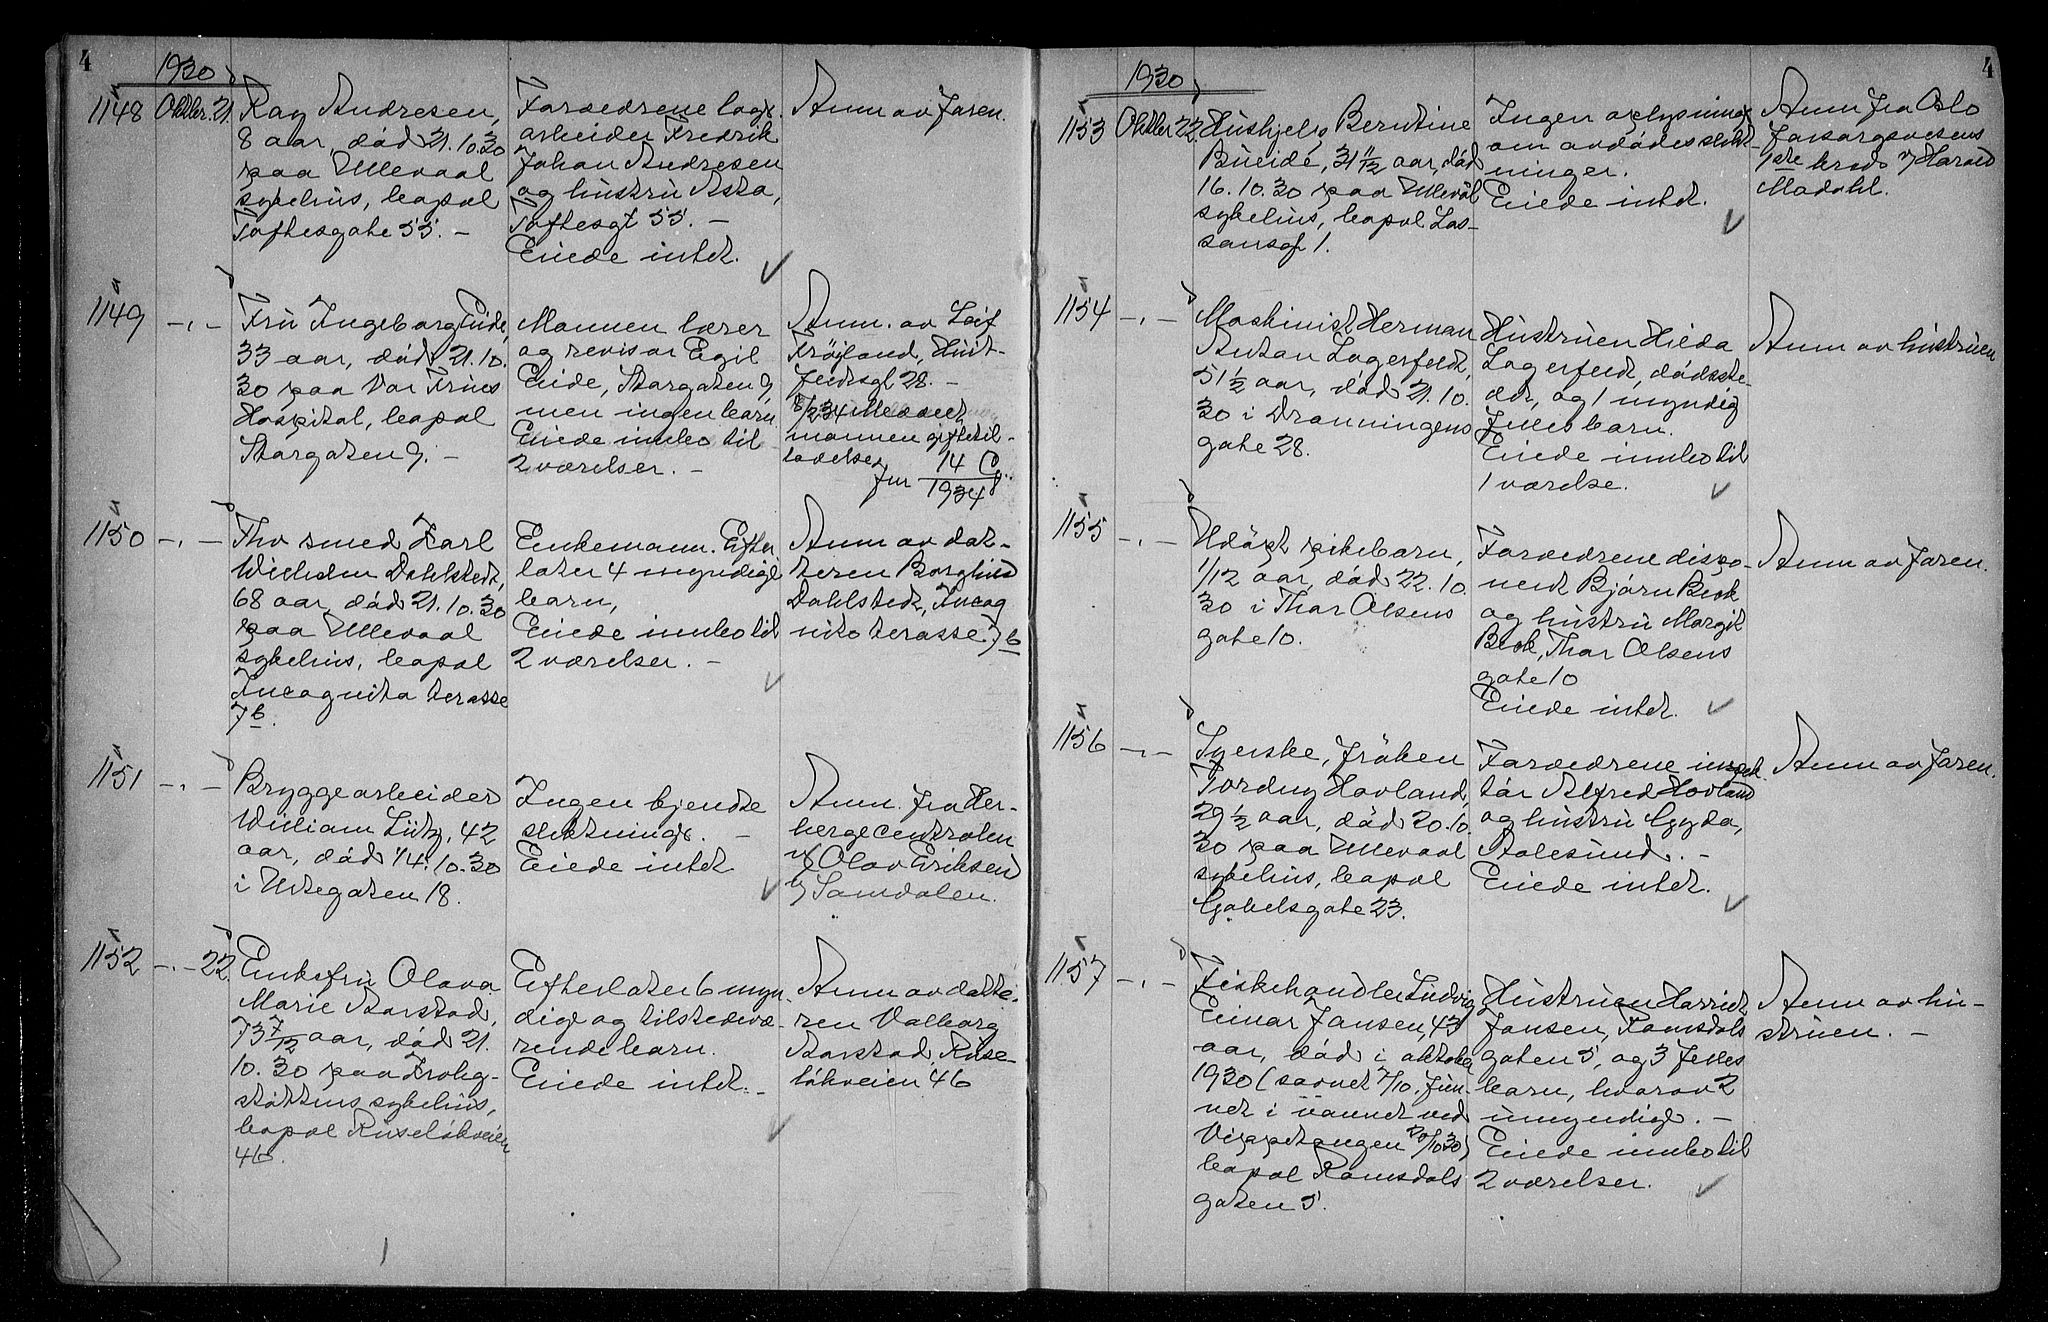 4
1930
1148 Oktbr. 21.
Kay Andresen,
8 aar, död 21.10.30
paa Ullevaal
sykehus, bopæl
Toftesgate 55. -
Forældrene lagr.
arbeider Fredrik
Johan Andresen
og hustru Asta,
Toftesgt 55. -
Eiede intet.
Anm av faren.
1149 -"-
Fru Ingeborg Eide,
33 aar, död 21.10.
30 paa Vor Frues
Hospital, bopæl
Storgaten 9. -
Mannen lærer
og revisor Egil
Eide, Storgaten 9,
men ingen barn.
Eiede innbo til
2 værelser. -
Anm. av Leif
Tröjland, Huit-
feldtsgt 28. -
8/2 34 Meddelt
mannen giftetil-
ladelse
jnr 14 G
1934
1150 -"-
Fhv smed Karl
Wilhelm Dahlstedt,
68 aar, död 21.10.30
paa Ullevaal
sykehus, bopæl
Incognito terasse
7b.
Enkemann. Efter
later 4 myndige
barn,
Eiede innbo til
2 værelser. -
Anm av dat-
teren Borghild
Dahlstedt, Incog
nito terasse 7b
1151 -"-
Bryggearbeider
William Lütz, 42
aar, död 14.10.30
i Urtegaten 18.
Ingen kjendte
slektninge. -
Eiede intet
Anm. fra Her-
bergecentralen
v/ Olav Eriksen
v/ Samdalen.
1152 -"- 22.
Enkefru Olava
Marie Aarstad,
73 7/12 aar, död 21.
10.30 paa Krohg-
stöttens sykehus,
bopæl Ruselökveien
46.
Efterlater 6 myn
dige og tilstedevæ-
rende barn.
Eiede intet. -
Anm av datte-
ren Valborg
Aarstad, Ruse-
lökveien 46
4
1930
1153 Oktbr 22.
Hushjelp Berntine
Bueide, 31 11/12 aar, död
16.10.30 paa Ullevål
sykehus, bopæl Las-
sonsgt 1.
Ingen oplysninger
om avdödes slekt-
ninger.
Eiede intet.
Anm fra Oslo
forsorgsvesens
1ste kreds v/ Harald
Modahl.
1154 -"-
Maskinist Herman
Anton Lagerfeldt,
51 1/2 aar, död 21.10.
30 i Dronningens
gate 28.
Hustruen Hilda
Lagerfeldt, dödsste-
det, og 1 myndig
felles barn.
Eiede innbo til
1 værelse.
Anm av hustruen
1155 -"-
Udöpt pikebarn,
1/12 aar, död 22.10.
30 i Thor Olsens
gate 10.
Forældrene dispo-
nent Bjørn Beck
og hustru Margit
Beck, Thor Olsens
gate 10
Eiede intet.
Anm av faren.
1156 -"-
Syerske, fröken
Tordny Hovland,
29 1/2 aar, död 20.10.
30 paa Ullevaal
sykehus, bopæl
Gabelsgate 23.
Forældrene inspek
tör Alfred Hovland
og hustru Gyda,
Aalesund. -
Eiede intet.
Anm av faren.
1157 -"-
Fiskehandler Ludvig
Einar Jansen, 43
aar, död i oktober
1930 (savnet 7/10. fun-
net i vannet ved
Vippetangen 20/10.30)
bopæl Romsdals
gaten 5.
Hustruen Harriet
Jansen, Romsdals
gaten 5, og 3 felles
barn, hvorav 2
umyndige. -
Eiede innbo til
2 værelser.
Anm av hu-
struen. -